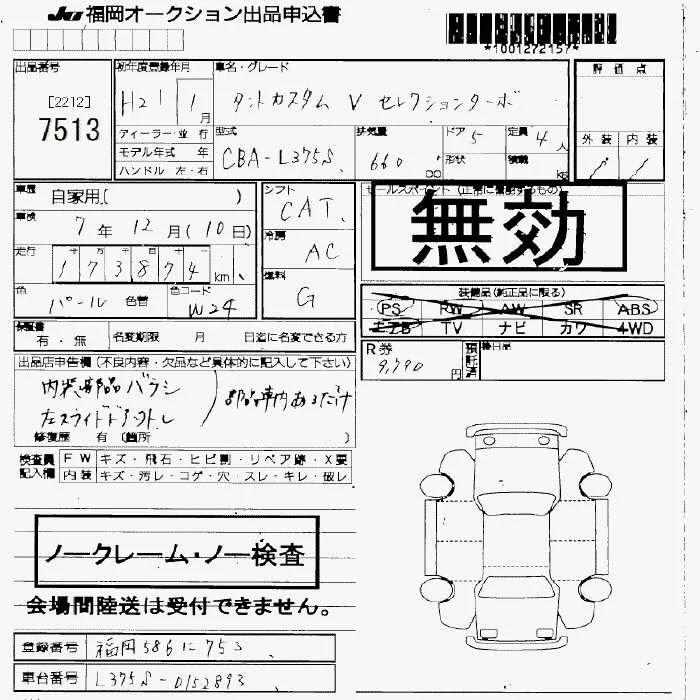 JU福岡オークション出品申込書
*1001272157*
出品番号
[2212]
7513
初年度登録年月
H21 1月
車名・グレード
タントカスタム V セレクションターボ
評価点
外装 内装
ディーラー・並 行
モデル年式 年
ハンドル 左・右
型式
CBA-L375S
排気量
660 cc
ドア 5
形状
定員 4人
積載 kg
車歴
自家用( )
車検
7年 12月(10日)
走行
十 万 千
173874km
色
パール 色替
色コード
W24
シフト
CAT
冷房
AC
燃料
G
セールスポイント(正常に機能するもの)
無効
装備品(純正品に限る)
PS RW AW SR ABS
エアB TV ナビ カワ 4WD
保証書
有・無
名変期限 月 日迄に名変できる方
R券
9,790円
預託済
後日品
出品店申告欄(不良内容・欠品など具体的に記入して下さい)
内装部品バラシ
左スライドドアウトレ
部品車内あるだけ
修復歴 有(箇所 )
検査員記入欄
FW キズ・飛石・ヒビ割・リペア跡・X要
内装 キズ・汚レ・コゲ・穴・スレ・キレ・破レ
ノークレーム・ノー検査
会場間陸送は受付できません。
登録番号
福岡586に755
車台番号
L375S-0152893